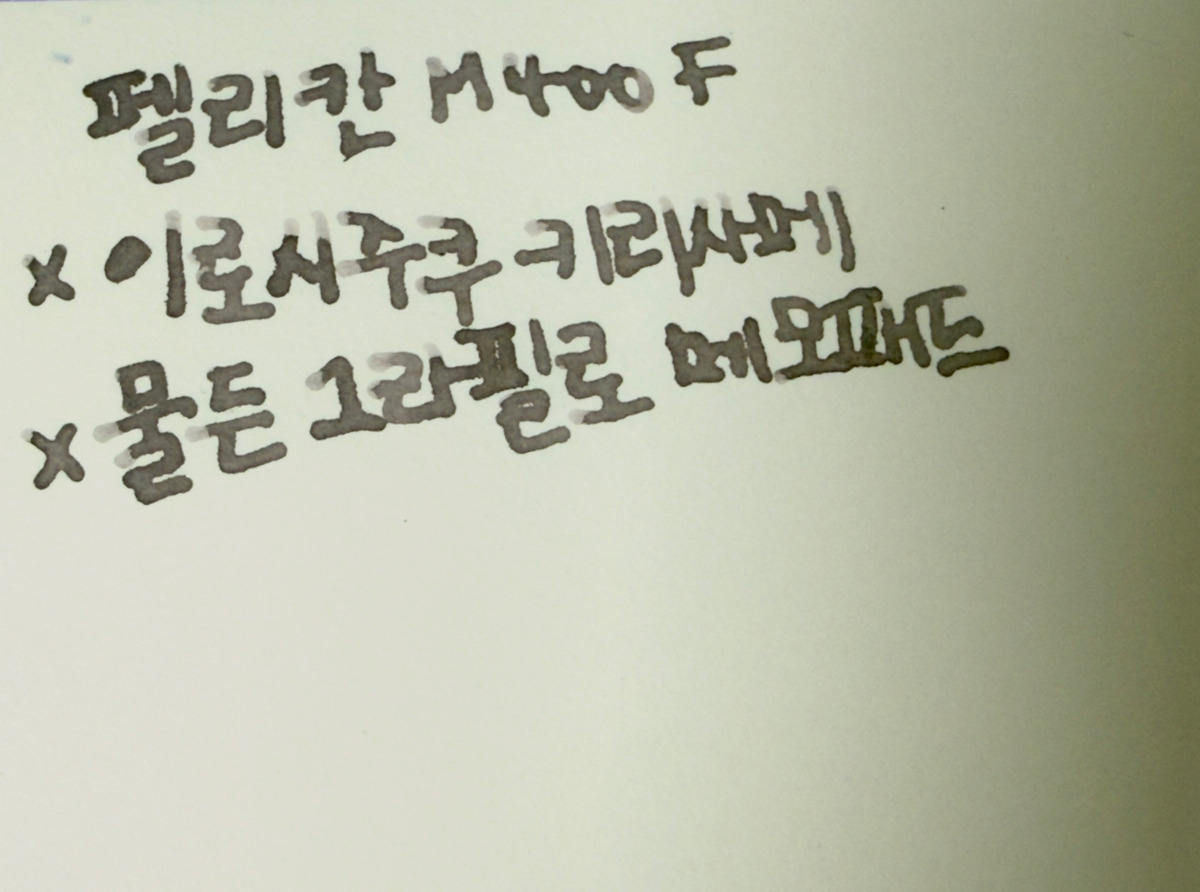 펠리칸 M400 F
x 이로시주쿠-키리사메
x 물든 그라필로 메모패드